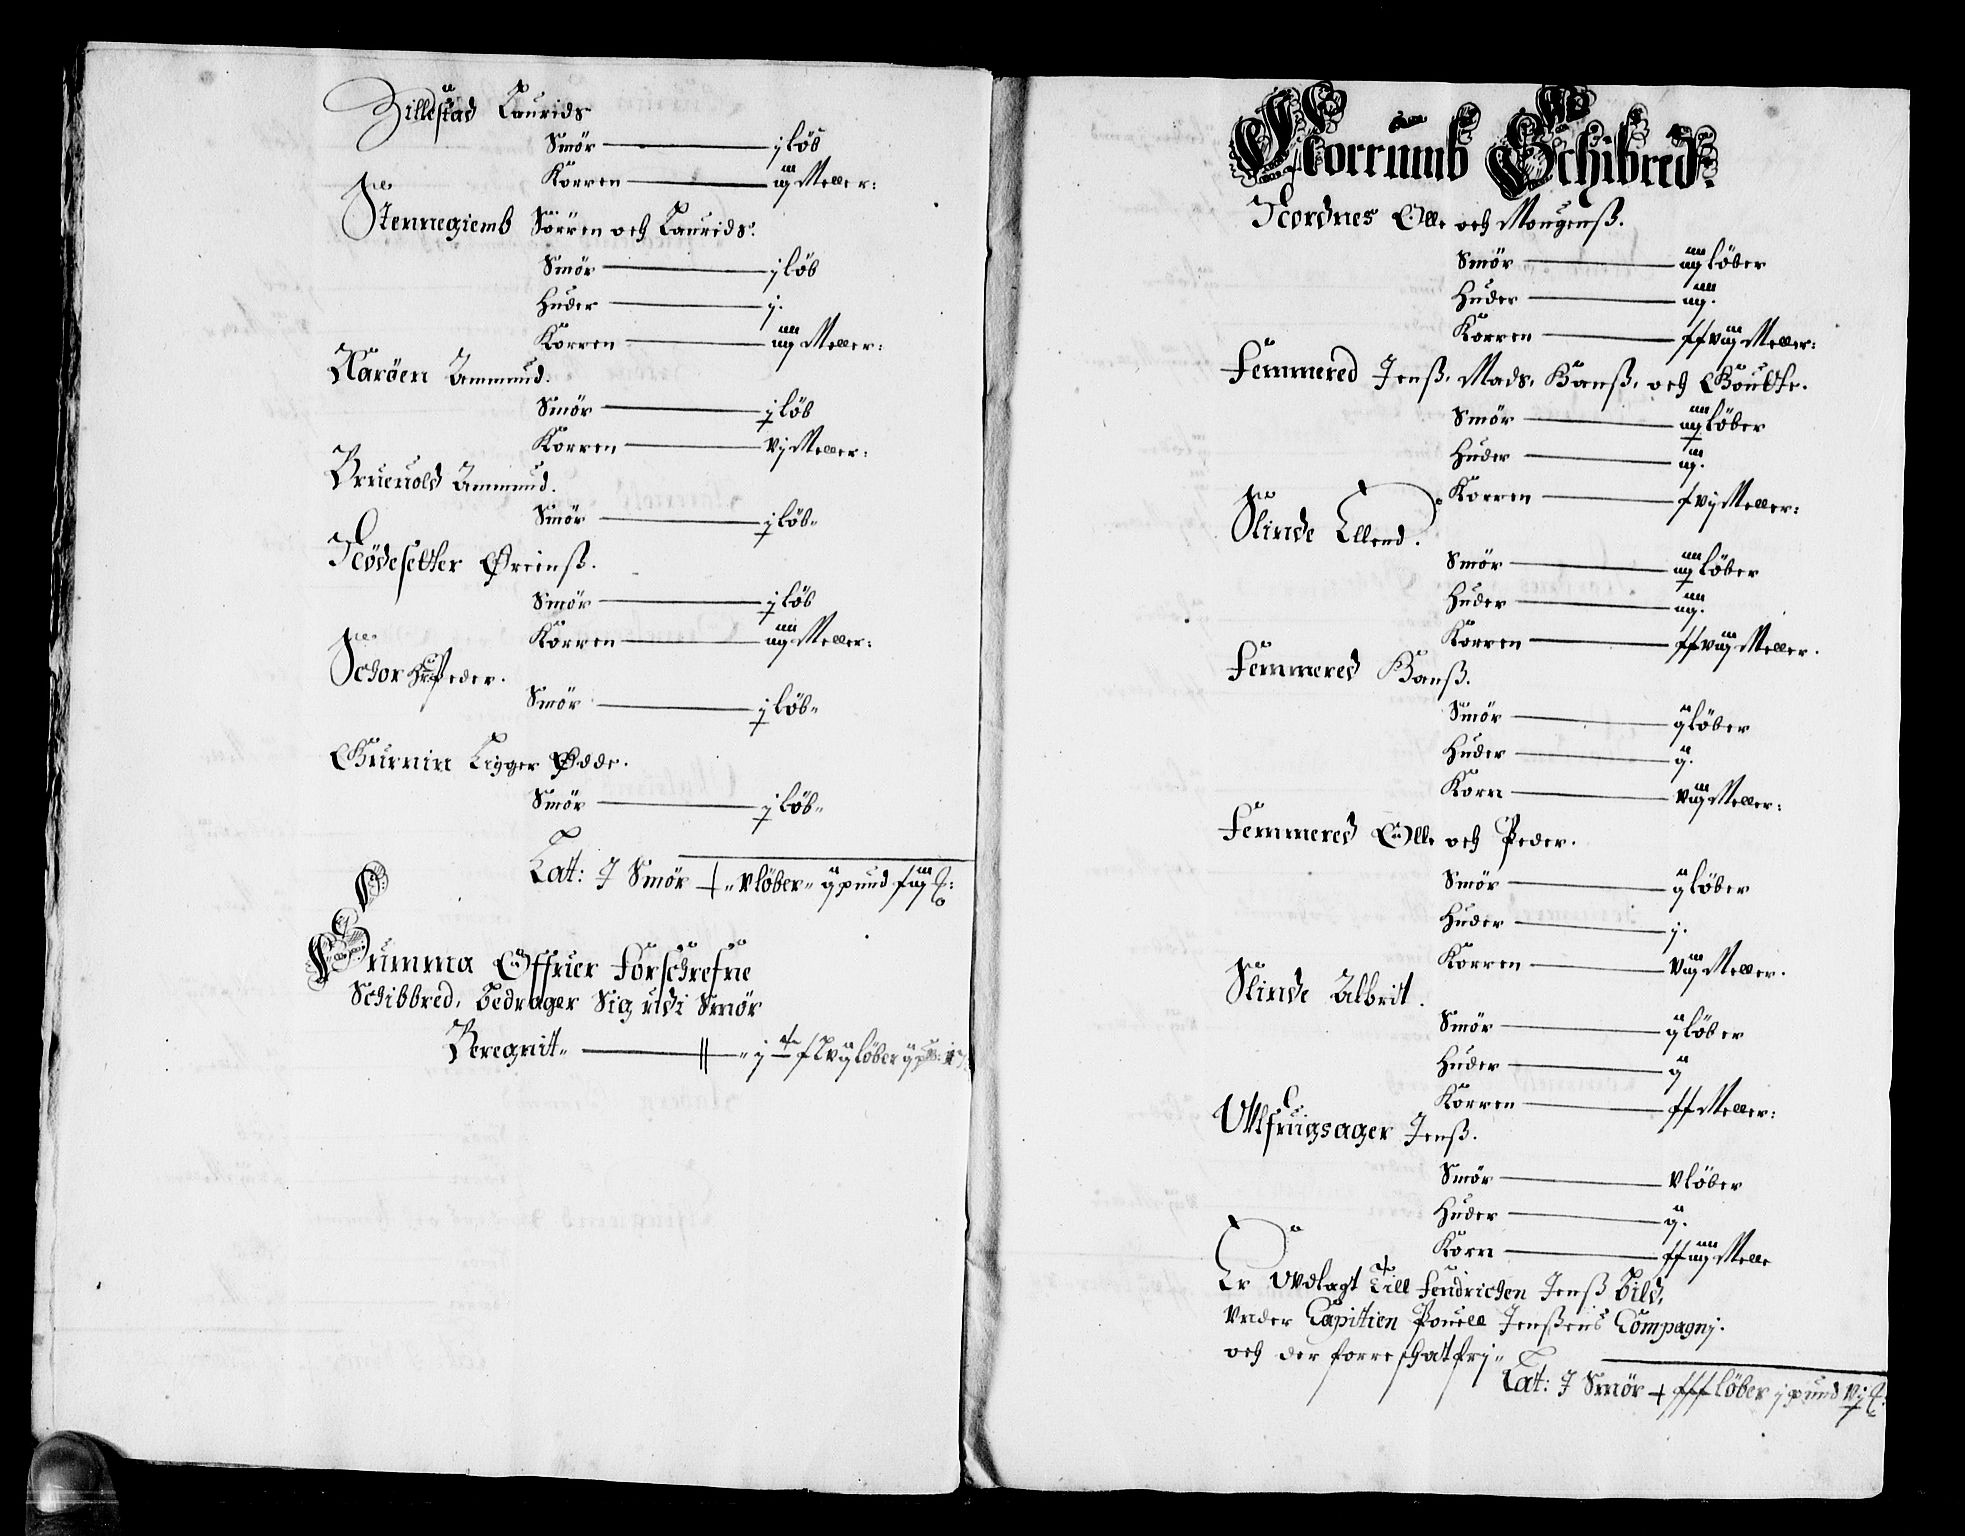 Zillestad Laurids
Smör — j löb
Korren — iiij Meller:
Stennegiemb Sörren och Laurids.
Smör — j löb
Huder — j.
Korren — iiij Meller:
Narøen Ammund.
Smör — j löb
Korren — vj Meller:
Ammund.
Smör — j löb
Nødesetter
Smör — j löb
Korren — iiij Meller:
Peder.
Smör — j löb
Ligger Ødde.
Smör — j löb
Lat: J Smör — v löber ij pund
Summa Offuer Forschrefne
Schibbred, Bedrager Sig udi Smör
Beregnit
Norrumb Schibred.
Nordnes Olle och Mougenß.
Smör — iiij löber
Huder — iiij.
Korren — xxviij Meller:
Femmered Jenß, Mads, Hanß, och
Smör — iiij löber
Huder — iij.
Korren — xvj Meller:
Slinde Ellend.
Smör — iiij löber
Huder — iiij.
Korren — xxviij Meller.
Femmered Hanß.
Smör — ij löber
Huder — ij.
Korn — viij Meller:
Femmered Olle och Peder.
Smör — ij löber
Huder — j.
Korren — viij Meller.
Slinde Albrit.
Smör — ij löber
Huder — ij
Korren — xx Meller:
Jenß.
Smör — v löber
Huder — ij.
Korn — xxiiij Melle
Er Vdlagt Till Fendrichen Jenß Bild,
Vnder Capitien Pouell Jenßens Compagnj.
och der forre schatfrj
Lat: J Smör — xxx löber j pund vj